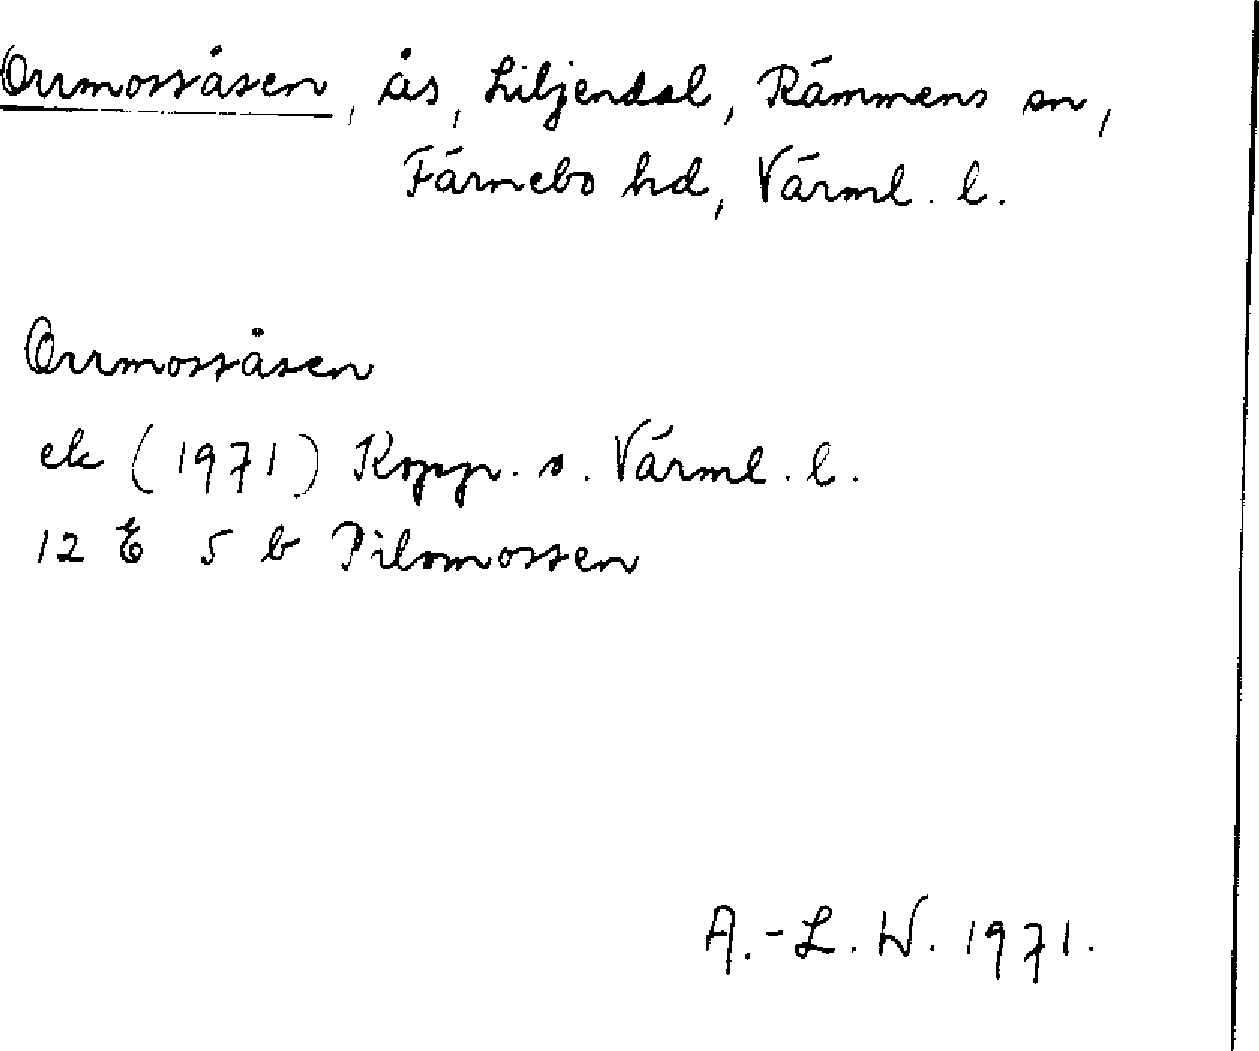 Orrmossåsen, ås, Liljendal, Rämmens sn,
Färnebo hd, Värml. l.
Orrmossåsen
ek (1971) Koppr. o. Värml. l.
12 E 5 b Pilsmossen
A.-L. W. 1971.